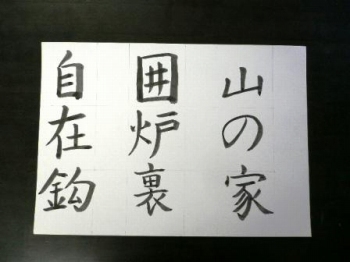 山の家
囲炉裏
自在鈎